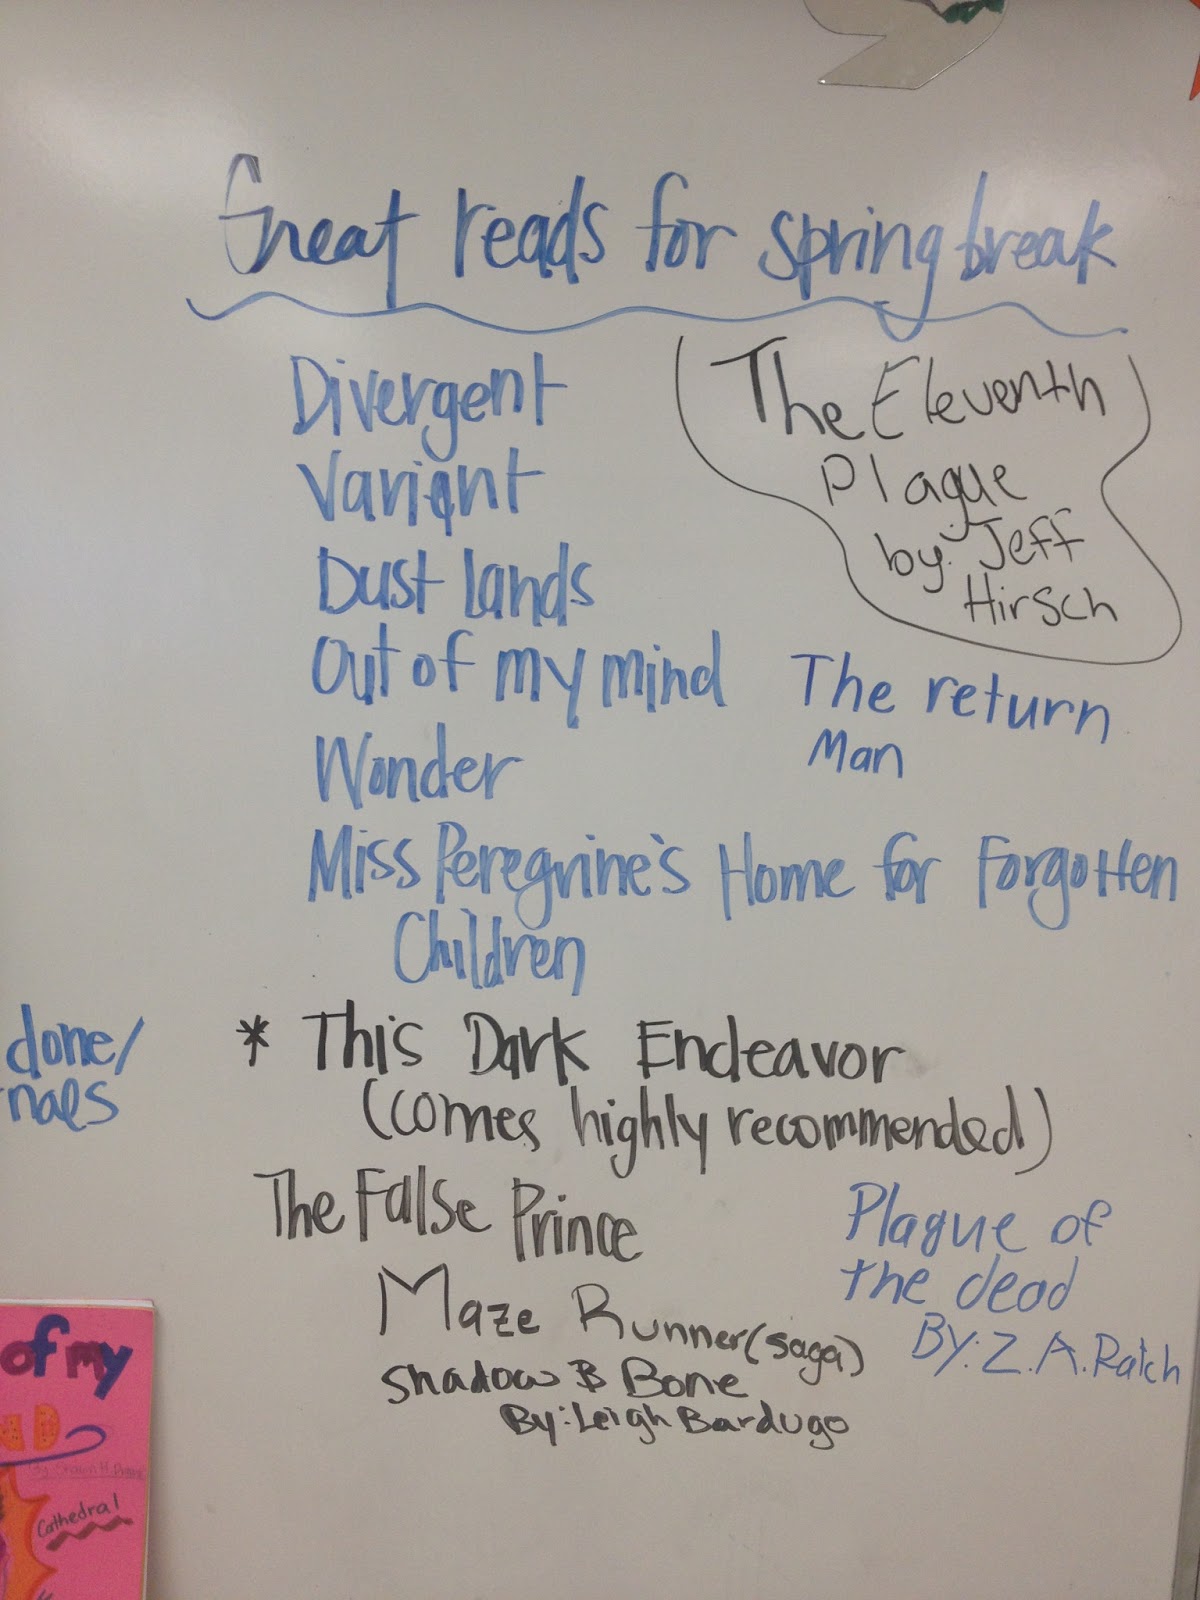 Great reads for spring break
Divergent
Variant
Dust lands
Out of my mind
Wonder
Miss Peregrine's Home for Forgotten
Children
The Eleventh
Plague
by: Jeff
Hirsch
The return
Man
* This Dark Endeavor
(comes highly recommended)
The False Prince
Maze Runner (saga)
Shadow & Bone
By: Leigh Bardugo
Plague of
the dead
BY: Z.A. Ratch
done/
nals
of my
ND
Cathedral